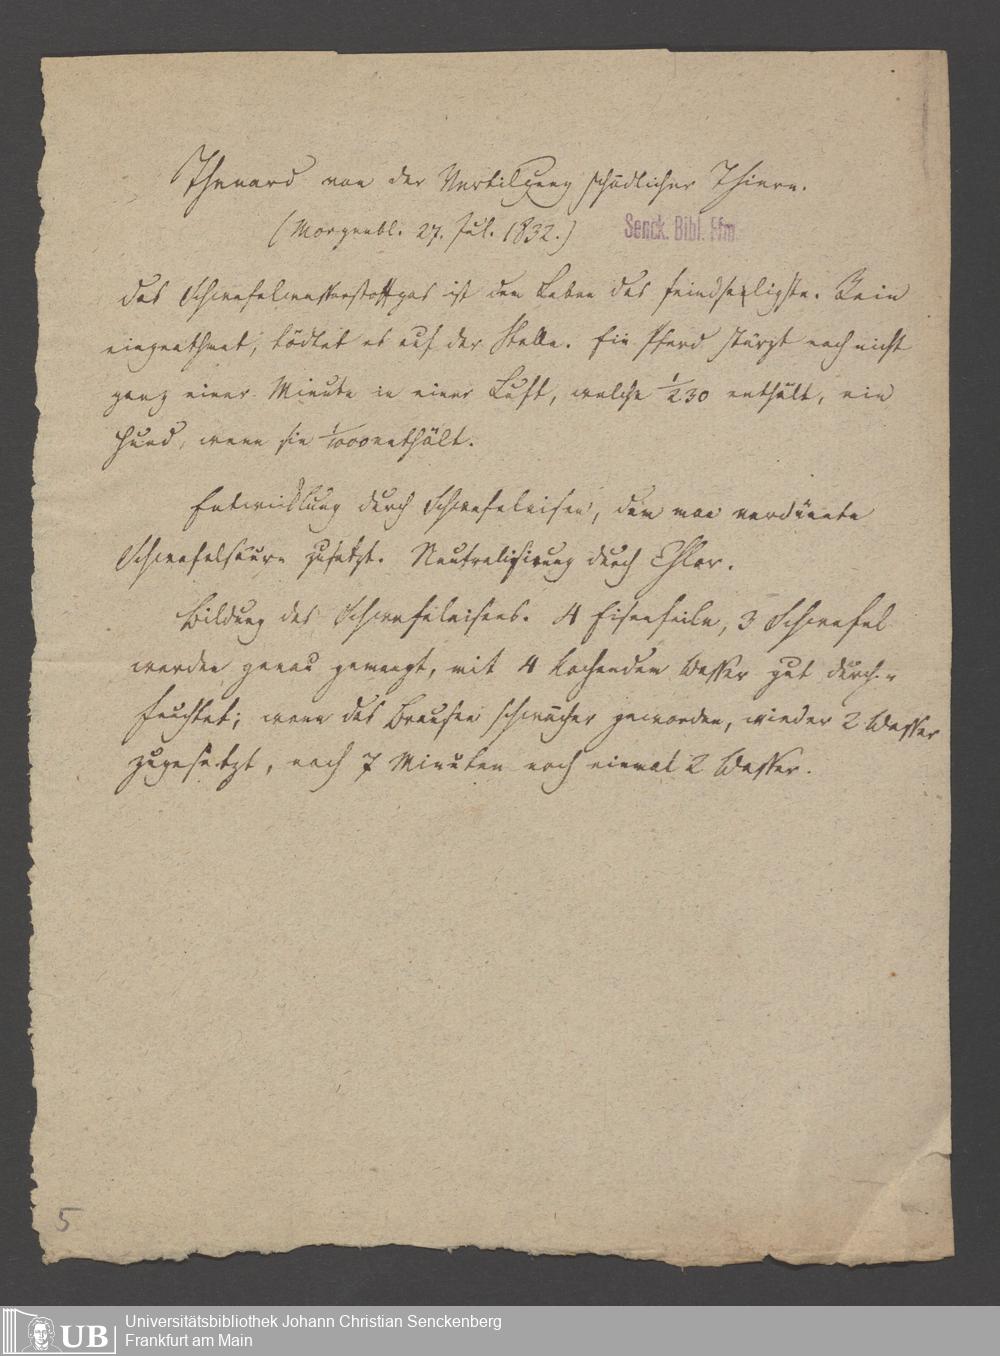 Thenard von der Vertilgung schädlicher Thiere.
(Morgenbl. 27. Jul. 1832.)
Senck. Bibl. Ffm.
Das Schwefelwasserstoffgas ist dem Leben das feindseligste. Rein
eingeathmet, tödtet es auf der Stelle. Ein Pferd stürzt nach nicht
ganz einer Minute in einer Luft, welche 1/230 enthält, ein
Hund, wenn sie 1/1000 enthält.
Entwicklung durch Schwefeleisen, dem man verdünnte
Schwefelsäure zusetzt. Neutralisirung durch Chlor.
Bildung des Schwefeleisens. 4 Eisenfeile, 3 Schwefel
werden genau gemengt, mit 4 kochendem Wasser gut durch-
feuchtet; wenn das Brausen schwächer geworden, wieder 2 Wasser
zugesetzt, nach 7 Minuten noch einmal 2 Wasser.
5
UB
Universitätsbibliothek Johann Christian Senckenberg
Frankfurt am Main